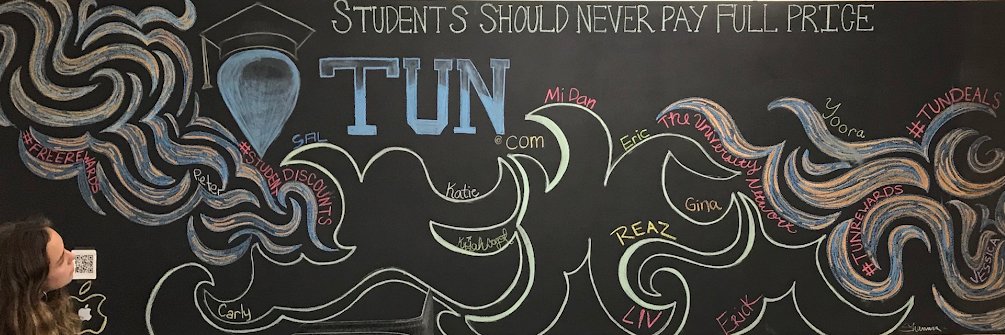 STUDENTS SHOULD NEVER PAY FULL PRICE
TUN
.COM
#FREEREWARDS
Pieter
#STUDENT DISCOUNTS
SAL
Katie
Mi Dan
Eric
The University Network
Yoora
#TUNDEALS
Gina
REAZ
#TUNREWARDS
JESSICA
Carly
LIV
ERICK